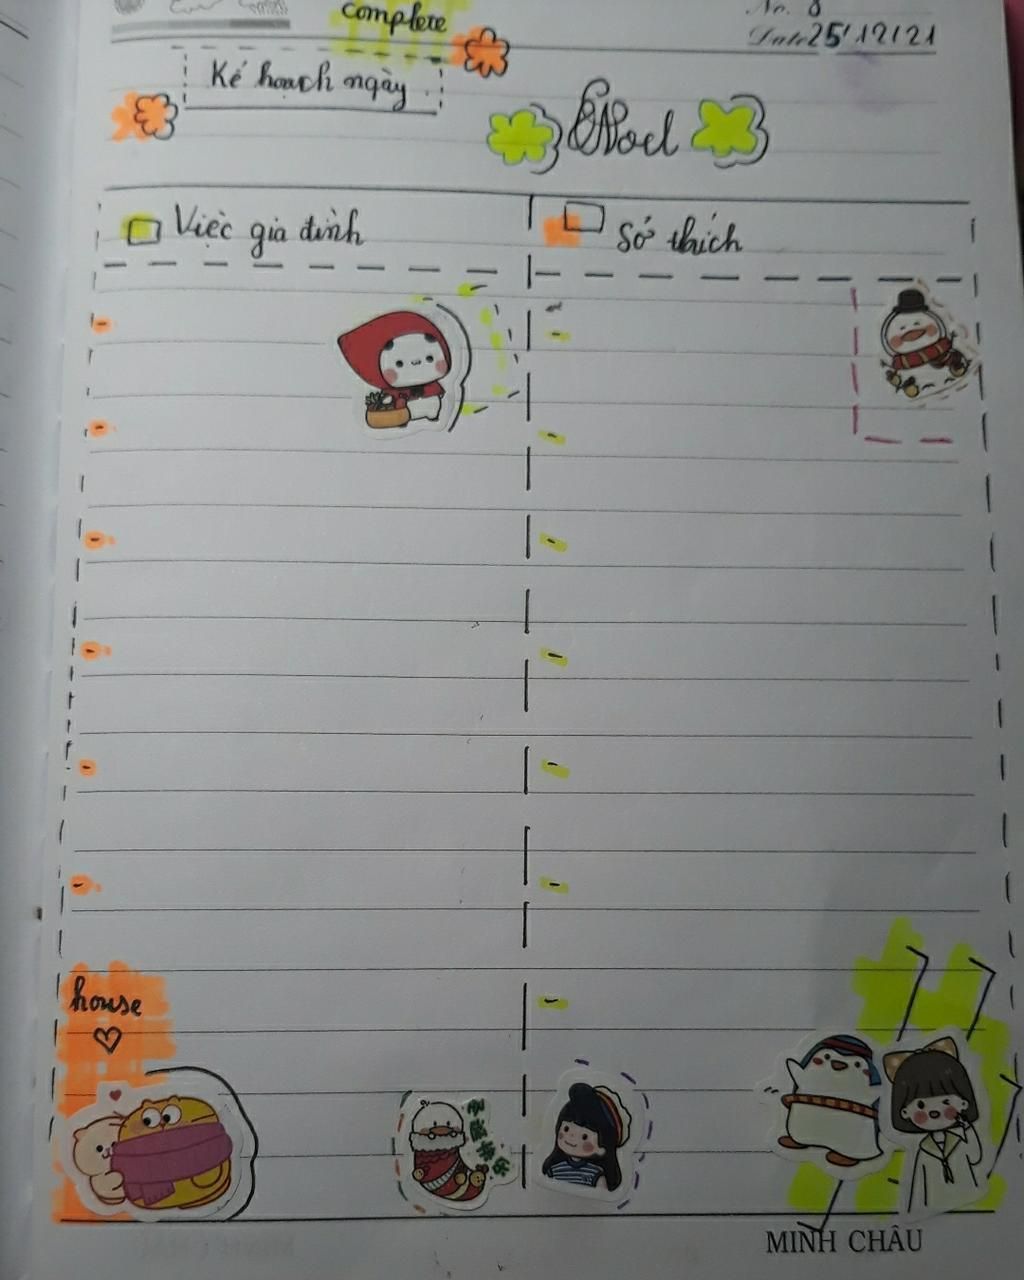 complete
No. 8
Date 25/12/21
Kế hoạch ngày
Noel
Việc gia đình
Sở thích
house
MINH CHÂU